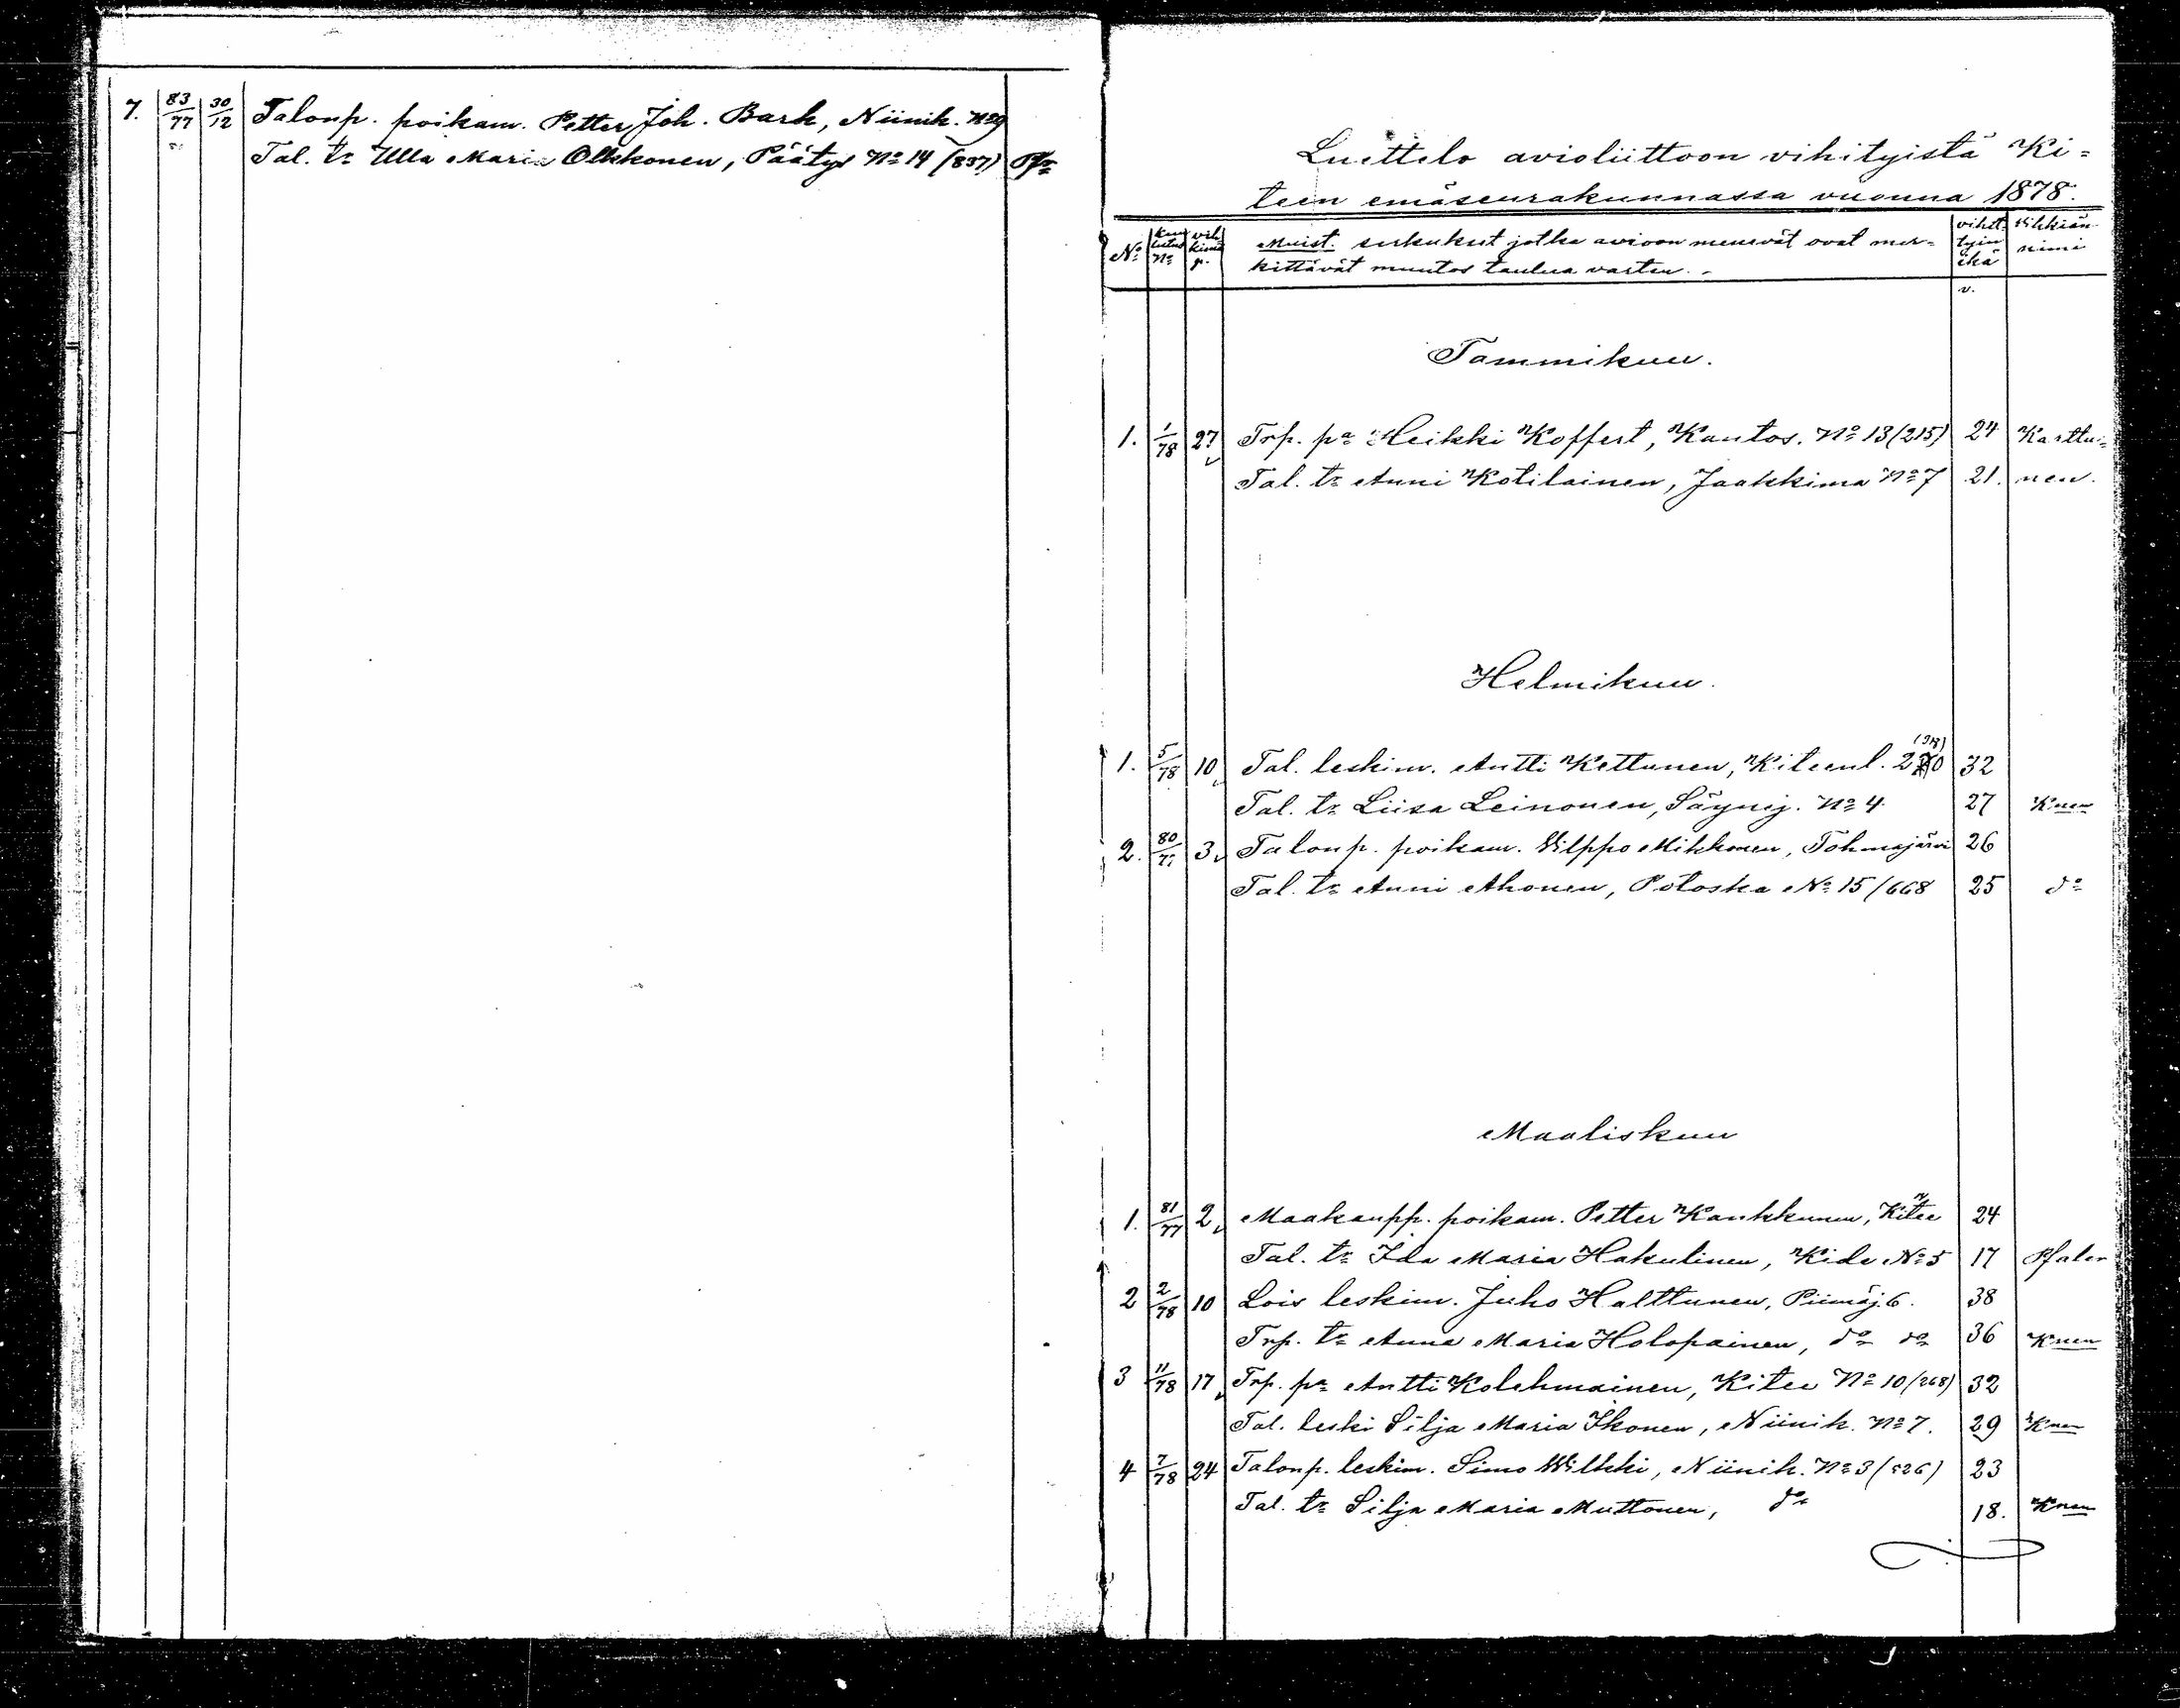 7. 83/77 30/12 Talonp. poikam. Petter Joh. Bark, Niinik. No 9
Tal. tr Ulla Maria Olkkonen, Päätye No 14 (837) Pfr
Luettelo avioliittoon vihityistä Ki=
teen emäseurakunnassa vuonna 1878.
No kuulutus No vihkimä p. Muist. serkukset jotka avioon menevät ovat mer= vihittyin ikä Vihkiän nimi
kittävät muutos taulua varten. - v.
Tammikuu.
1. 1/78 27 Trp. pa Heikki Koffert, Kantos. No 13 (215) 24 Karttu=
Tal. tr Anni Kotilainen, Jaakkima No 7 21. nen.
Helmikuu.
1. 5/78 10 Tal. leskim. Antti Kettunen, Kiteenl. 32
Tal. tr Liisa Leinonen, Säynej. No 4 27 Knen
2. 80/77 3 Talonp. poikam. Wilppo Mikkonen, Tohmajärvi 26
Tal. tr Anni Ahonen, Potoska No 15/668 25 do
Maaliskuu
1. 81/77 2 Maakaupp. poikam. Petter Kankkunen, Kitee 24
Tal. tr Ida Maria Hakulinen, Kide No 5 17 Pfaler
2 2/78 10 Lois leskim. Juho Halttunen, Piimäj. 6. 38
Trp. tr Anna Maria Holopainen, do do 36 Knen
3 11/78 17 Trp. pa Antti Kolehmainen, Kitee No 10 (268) 32
Tal. leski Silja Maria Ikonen, Niinik. No 7. 29 Knen
4 7/78 24 Talonp. leskim. Simo Wilkki, Niinik. No 3 (526) 23
Tal. tr Silja Maria Muttonen, do 18. Knen